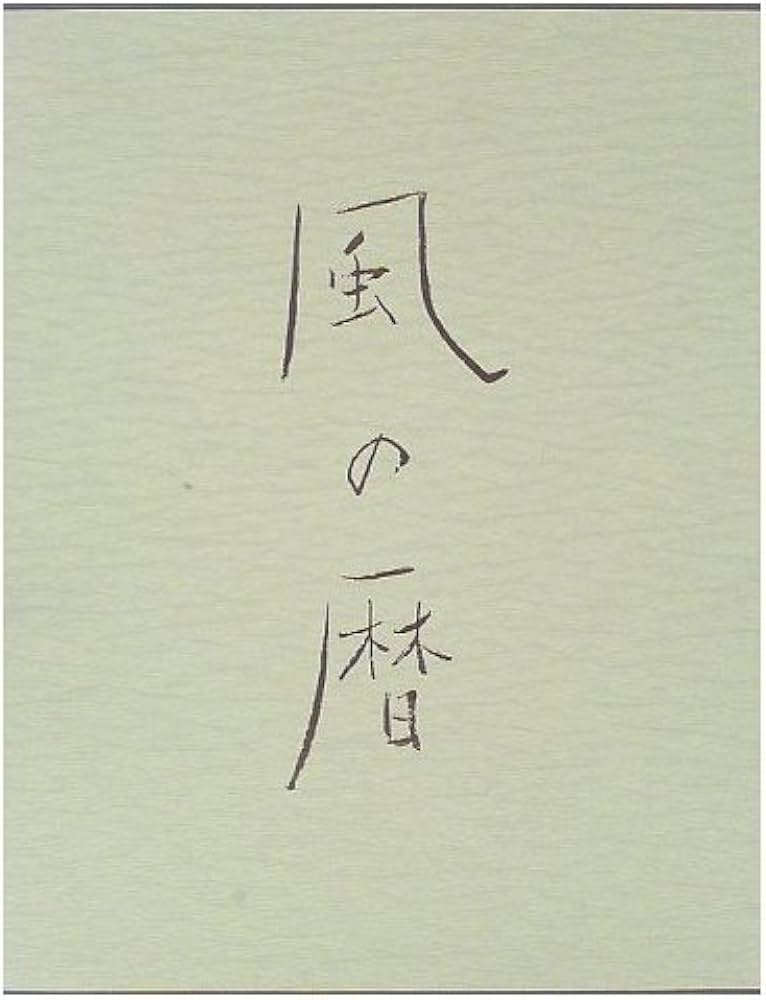 風の暦